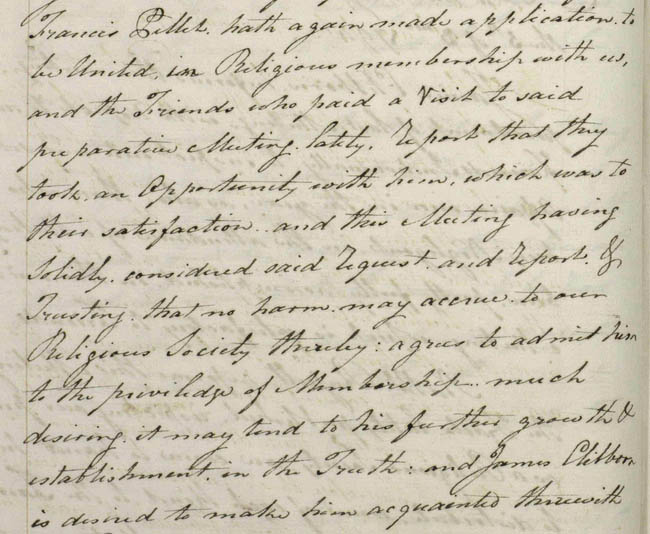 Francis Pellet. hath again made application. to
be United. in Religious membership with us,
and the Friends who paid a Visit to said
preparative Meeting. lately. Report that they
took. an Opportunity with him, which was to
their satisfaction.. and this Meeting having
Solidly. considered said Request. and Report. &
Trusting. that no harm. may accrue. to our
Religious Society thereby: agrees to admit him
to the priviledge of Membership. much
desiring. it may tend to his further growth &
establishment. in the Truth: and James Clibborn
is desired to make him acquainted therewith